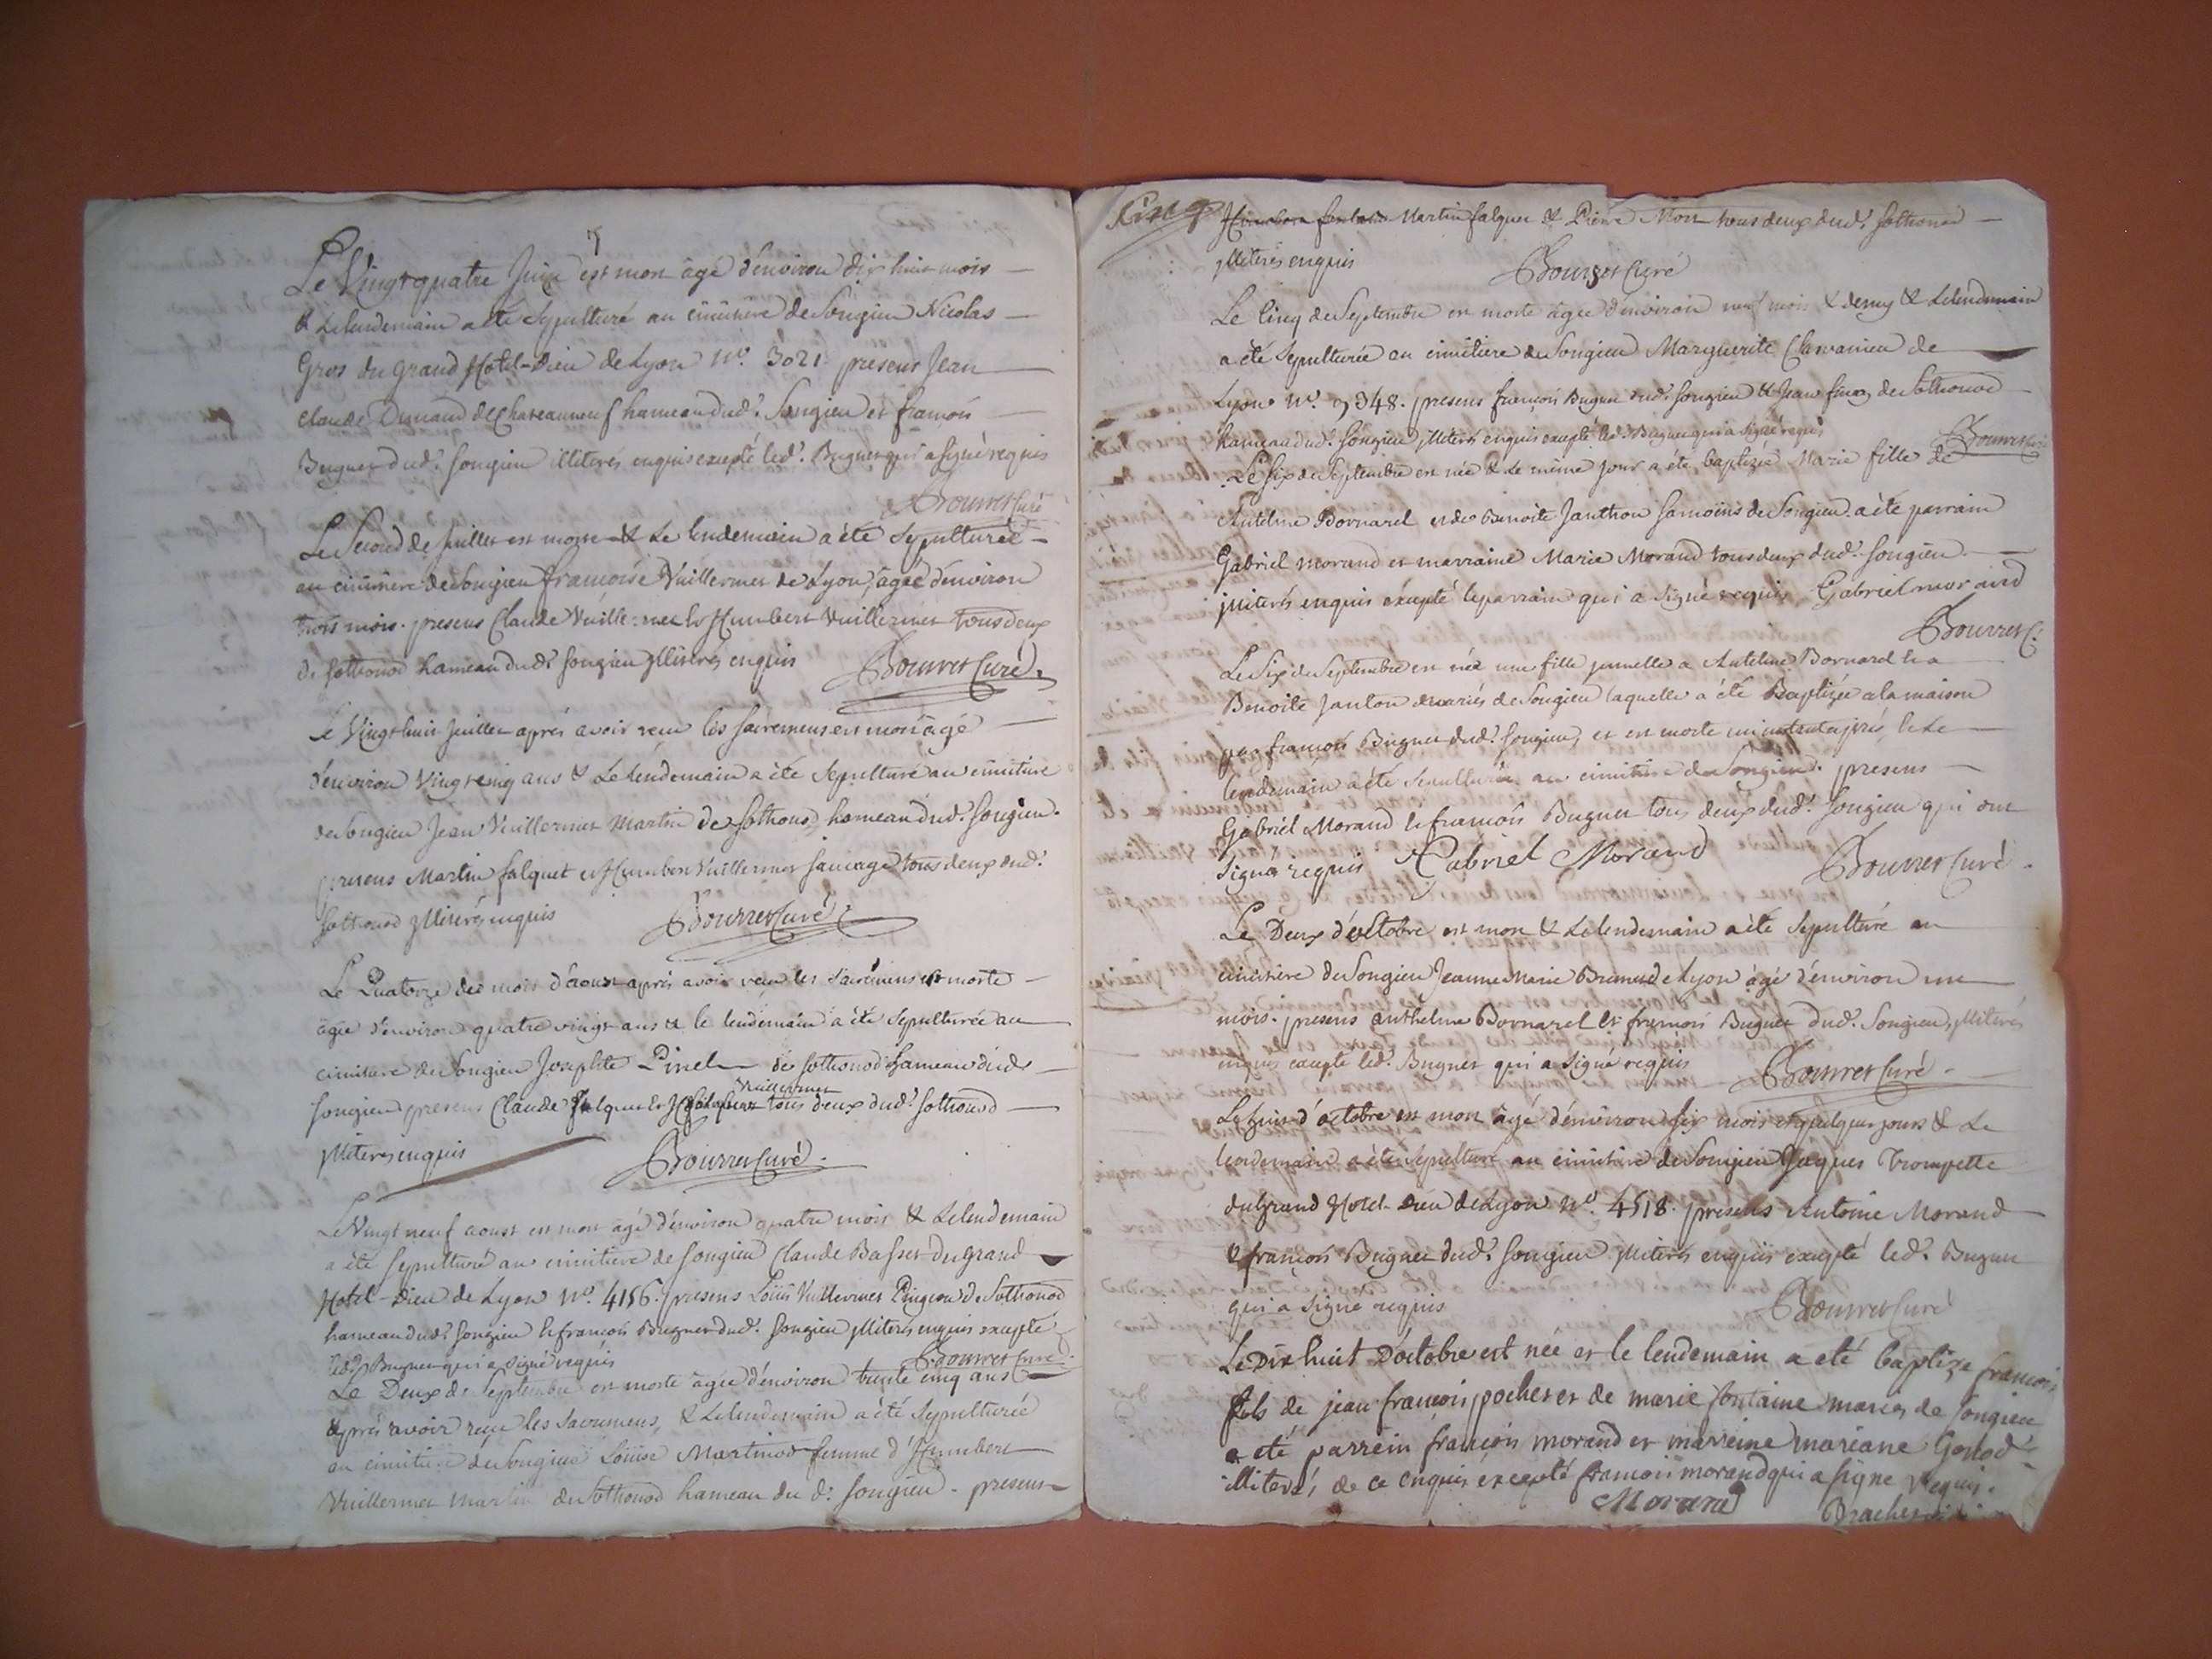 Le Vingt quatre Juin est mort âgé d'environ dix huit mois
& Lelendemain a été sepulturé au cimitiere de Songieu Nicolas
Gros du grand Hotel-Dieu de Lyon N.º 3021. presens Jean
claude Dunand de Chateauneuf hameau dud.t Songieu et francois
Bugnet dud.t songieu illiterés enquis excepté led.t Bugnet qui a signé requis
Bourret Curé
Le Second de Juillet est morte & Le lendemain a été sepulturée
au cimitiere de Songieu francoise Vuillermet de Lyon, agée d'environ
trois mois. presens Claude Vuille:met et Humbert Vuillermet tous deux
de sothonod hameau dud.t songieu illiterés enquis Bourret Curé.
Le Vingt huit Juillet aprés avoir recu les sacremens est mort agé
d'environ Vingt cinq ans & Le lendemain a été sepulturé au cimitiere
de Songieu Jean Vuillermet Martin de sothonod hameau dud.t songieu.
presens Martin falquet et Humbert Vuillermet sauvage tous deux dud.t
sothonod illiterés enquis Bourret Curé
Le Quatorze du mois d'aoust aprés avoir recu les sacremens est morte
âgée d'environ quatre vingt ans & le lendemain a été sepulturée au
cimitiere de Songieu Josephte Pinel de sothonod hameau dud.t
Vuillermet
songieu presens Claude falquet et tous deux dud.t sothonod
illiterés enquis Bourret Curé.
Le Vingt neuf aoust est mort agé d'environ quatre mois & Lelendemain
a été sepulturé au cimitiere de songieu Claude Basset du grand
Hotel-Dieu de Lyon N.º 4156. presens Loüis Vuillermet Pingeon de Sothonod
hameau dud.t songieu et francois Bugnet dud.t songieu illiterés enquis excepté
led.t Bugnet qui a signé requis Bourret Curé.
Le Deux de Septembre est morte agée d'environ trente cinq ans
aprés avoir reçu les sacremens, & Lelendemain a été sepulturée
au cimitiere de Songieu Loüise Martinod femme d'Humbert
Vuillermet martin de Sothonod hameau du d.t songieu. presens
Cinq Martin falquet & Pierre Mort tous deux dud.t sothonod
illiterés enquis Bourret Curé
Le Cinq de Septembre est morte âgée d'environ neuf mois & demy & Lelendemain
a été sepulturée au cimitiere de Songieu Marguerite de
Lyon N.º 348. presens françois Bugnet dud.t songieu & Jean de Sothonod
hameau dud.t songieu illiterés enquis excepté led.t Bugnet qui a signé requis
Bourret Curé
Le Six de Septembre est née & Le même jour a été baptizée Marie fille de
Antelme Bornarel et de Benoite Janthon de Songieu. a été parrain
Gabriel morand et marraine Marie Morand tous deux dud.t songieu.
illiterés enquis excepté le parrain qui a signé requis Gabriel morand
Bourret C.
Le Six de Septembre est née une fille jumelle a Antelme Bornarel & a
Benoite Janton mariés de Songieu laquelle a été Baptizée a la maison
par françois Bugnet dud.t songieu, et est morte un instant aprés, & Le
lendemain a été sepulturée au cimitiere de Songieu. presens
Gabriel Morand & francois Bugnet tous deux dud.t songieu qui ont
signé requis Gabriel Morand Bourret Curé.
Le Deux d'octobre est mort & Lelendemain a été sepulturé au
cimitiere de Songieu Jeanne Marie de Lyon âgé d'environ un
mois. presens anthelme Bornarel & francois Bugnet dud.t Songieu, illiterés
enquis excepté led.t Bugnet qui a signé requis Bourret Curé.
Le huit d'octobre est mort âgé d'environ six mois et quelques jours & Le
lendemain a été sepulturé au cimitiere de Songieu Jaques Trompette
du Grand Hotel-Dieu de Lyon N.º 4518. presens Antoine Morand
& françois Bugnet dud.t songieu illiterés enquis excepté led.t Bugnet
qui a signé requis Bourret Curé
Le Dix huit D'octobre est née et le lendemain a eté baptize francois
fils de jean françois pochet et de marie fontaine mariés de songieu
a eté parrein francois morand et marreine mariane Gonod
illiterés de ce enquis excepté francois morand qui a signe requis.
Morand Brachet